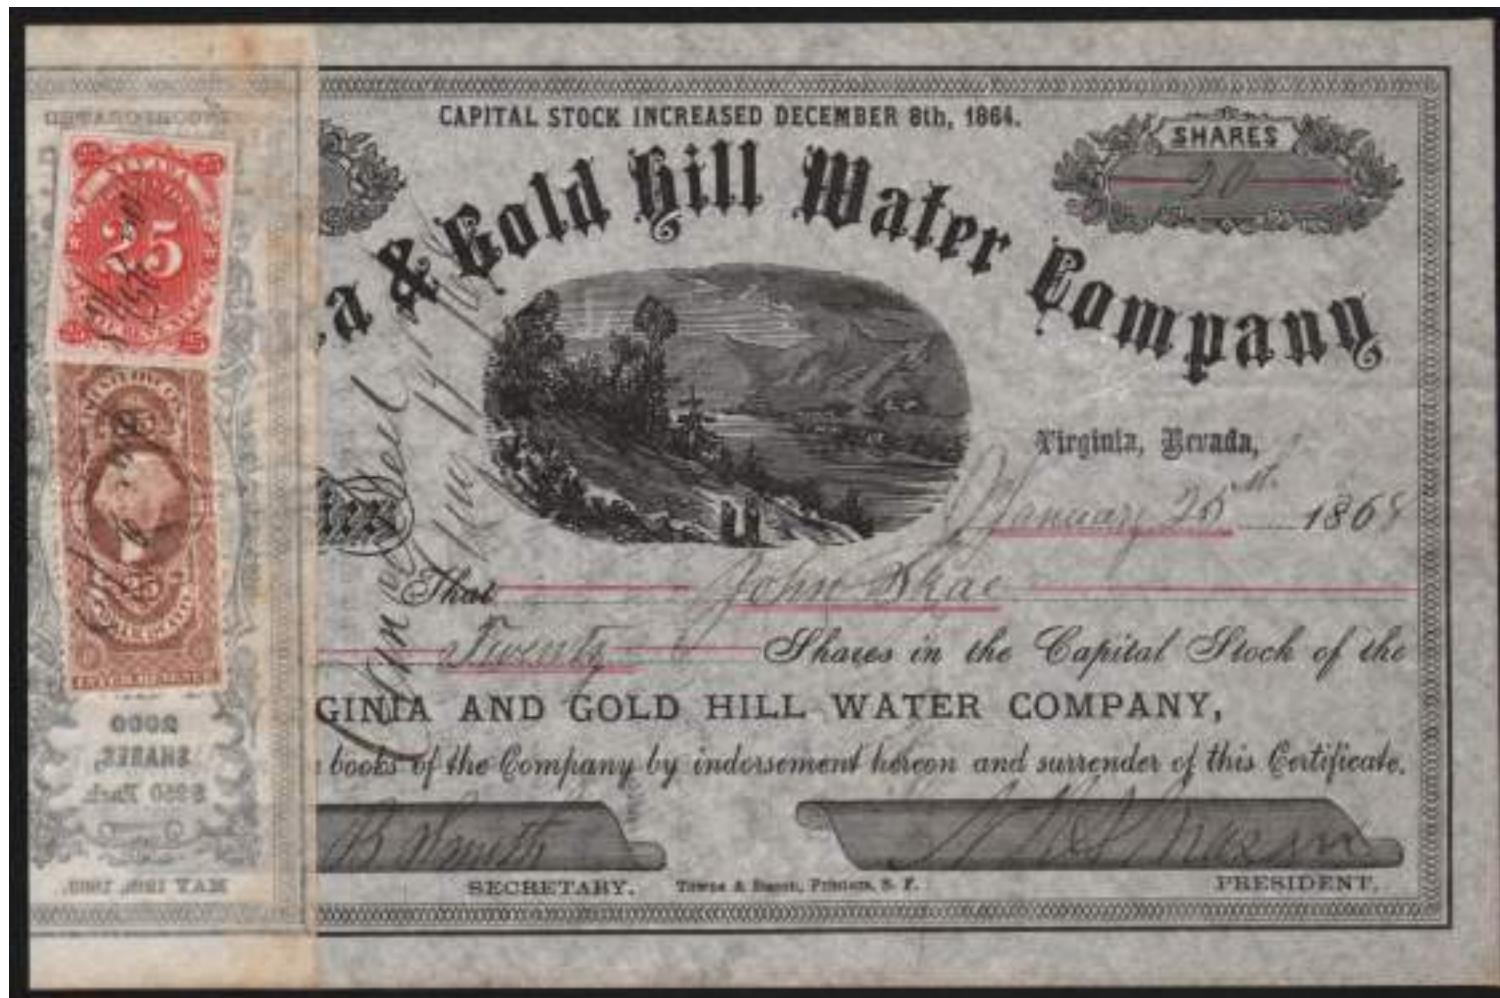 CAPITAL STOCK INCREASED DECEMBER 8th, 1864.
SHARES
20
a & Gold Hill Water Company
NEVADA
25
25
Virginia, Nevada,
January 25th. 1868
That John Skae
Twenty Shares in the Capital Stock of the
GINIA AND GOLD HILL WATER COMPANY,
books of the Company by indorsement hereon and surrender of this Certificate.
B Smith
SECRETARY.
Towne & Bacon, Printers, S. F.
PRESIDENT.
INCORPORATED
2000
SHARES,
$250 Each
MAY 12th, 1863.